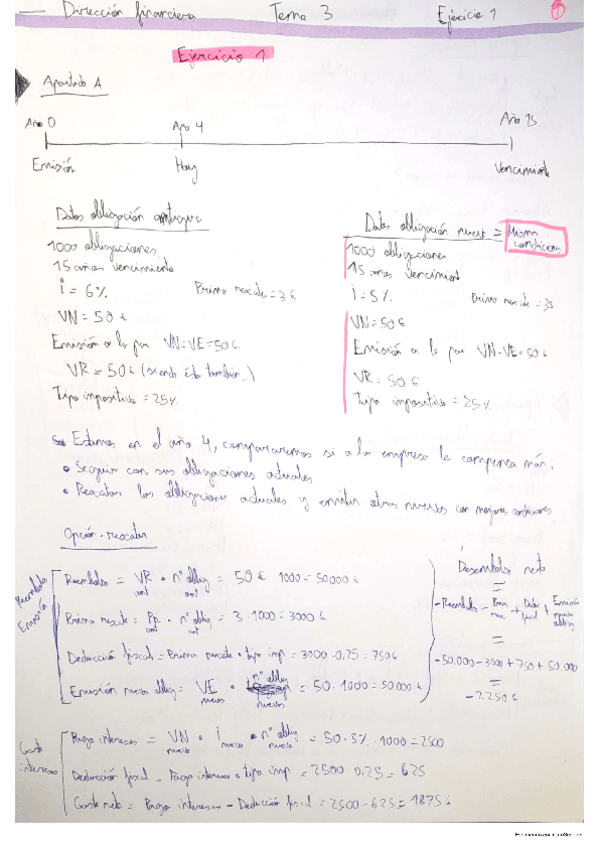 Dirección financiera Tema 3 Ejercicio 1 1
Ejercicio 1
Apartado A
Año 0 Año 4 Año 15
Emisión Hoy Vencimiento
Datos obligación antigua
1000 obligaciones
15 años vencimiento
i = 6% Prima rescate = 3 €
VN = 50 €
Emisión a la par VN=VE=50€
VR = 50€ (siendo ésto también)
Tipo impositivo = 25%
Datos obligación nueva = Mismas condiciones
1000 obligaciones
15 años vencimiento
i = 5% Prima rescate =
VN = 50 €
Emisión a la par VN=VE=50€
VR = 50€
Tipo impositivo = 25%
Estamos en el año 4, compararemos si a la empresa le compensa más:
• Seguir con sus obligaciones actuales
• Rescatar las obligaciones actuales y emitir otras nuevas con mejores condiciones.
Opción rescatar
Reembolso Emisión
Reembolso = VR ant · nº oblig ant = 50 € · 1000 = 50000 €
Prima rescate = Pr ant · nº oblig ant = 3 · 1000 = 3000 €
Deducción fiscal = Prima rescate · tipo imp = 3000 · 0,25 = 750€
Emisión nuevas oblig = VE nuevas · nº oblig nuevas = 50 · 1000 = 50000 €
Desembolso neto
=
- Reembolso - Prima res + Deduc fiscal + Emisión nuevas oblig
=
-50.000 - 3000 + 750 + 50.000
=
-2.250€
Coste intereses
Pago intereses = VN nuevas · i nuevas · nº oblig nuevas = 50 · 5% · 1000 = 2500
Deducción fiscal = Pago intereses · tipo imp = 2500 · 0,25 = 625
Coste neto = Pago intereses - Deducción fiscal = 2500 - 625 = 1875 €